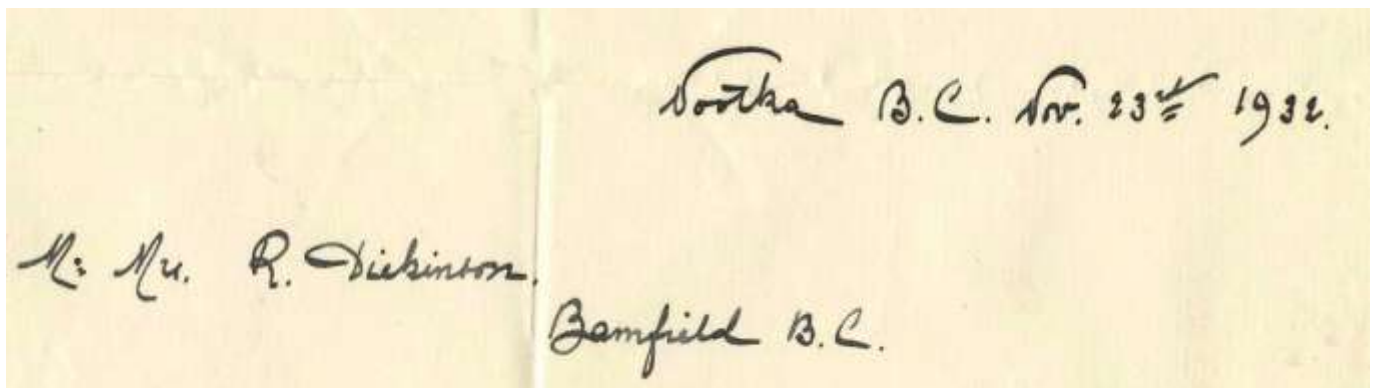 Nootka B.C. Nov. 23rd 1932.
Mr. Mrs. R. Dickinson.
Bamfield B.C.